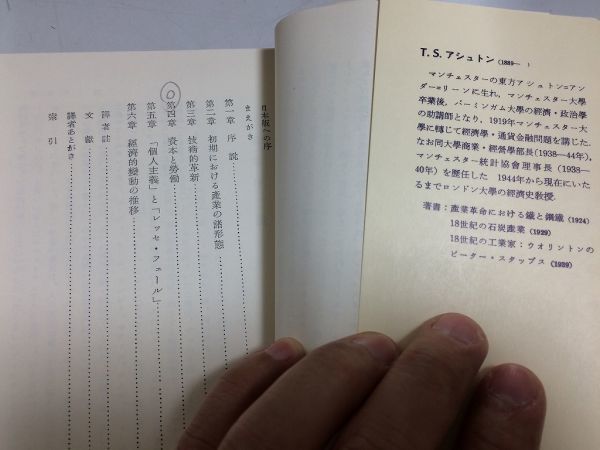 T. S. アシュトン (1889— )
マンチェスターの東方アシュトン=アン
ダー=リーンに生れ, マンチェスター大學
卒業後, バーミンガム大學の經濟・政治學
の助講師となり, 1919年マンチェスター大
學に轉じて經濟學・通貨金融問題を講じた.
なお同大學商業・經營學部長(1938—44年),
マンチェスター統計協會理事長(1938—
40年)を歴任した 1944年から現在にいた
るまでロンドン大學の經濟史教授.
著書: 産業革命における鐵と鋼鐵 (1924)
18世紀の石炭産業 (1929)
18世紀の工業家: ウオリントンの
ピーター・スタッブス (1939)
日本版への序
まえがき
第一章 序説
第二章 初期における産業の諸形態
第三章 技術的革新
第四章 資本と勞働
第五章 「個人主義」と「レッセ・フェール」
第六章 經濟的變動の推移
譯者註
文獻
譯者あとがき
索引